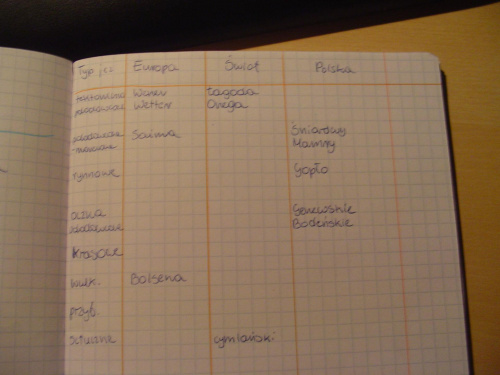 Typ jez Europa Świat Polska
Waner Ładoga
Wetter Onega
Saima Śniardwy
Mamry
rynnowe Gopło
Genewskie
Bodeńskie
krasowe
wulk. Bolsena
przyb.
sztuczne cymlański